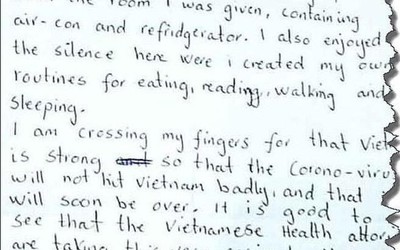 the room I was given, containing
air-con and refridgerator. I also enjoyed
the silence here were i created my own
routines for eating, reading, walking and
sleeping.
I am crossing my fingers for that Viet
is strong and so that the Corono-viru
will not hit Vietnam badly, and that i
will soon be over. It is good to
see that the Vietnamese Health attor
are taking this